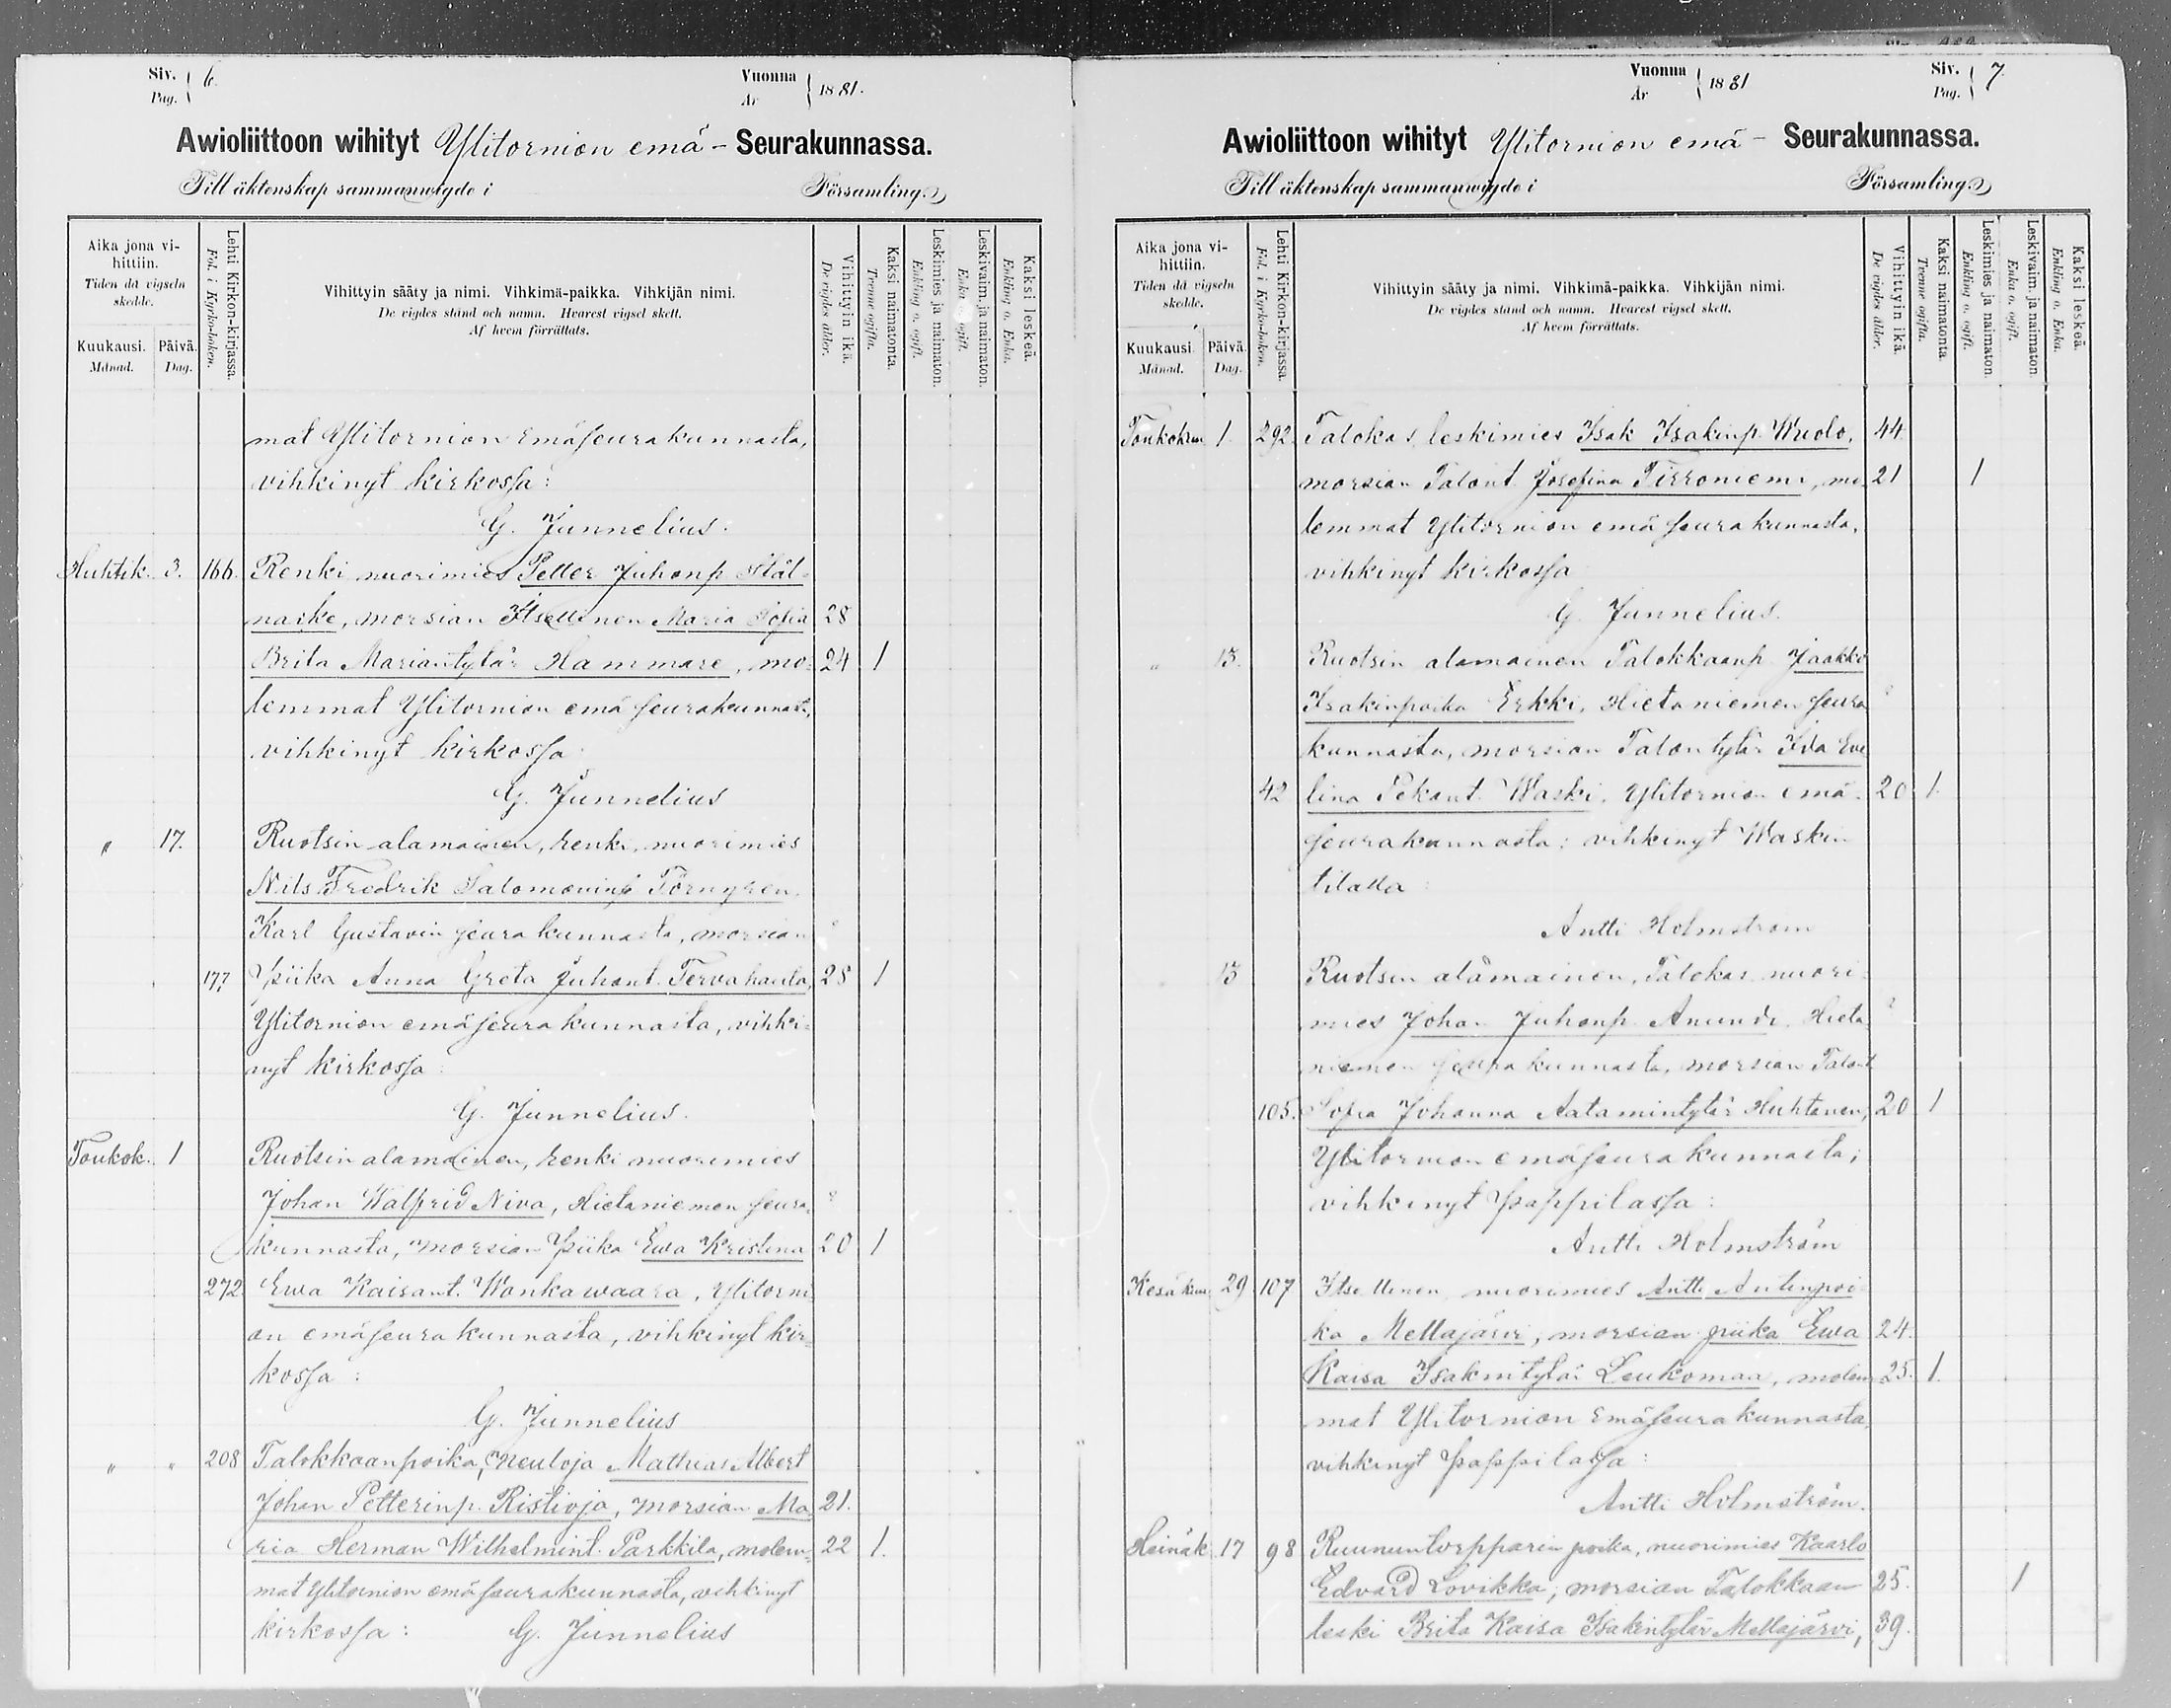 Siv. 6.
Pag.
Vuonna 1881.
År
Awioliittoon wihityt Ylitornion emä- Seurakunnassa.
Till äktenskap sammanwigde i Församling.
Aika jona vihittiin.
Tiden då vigseln skedde.
Kuukausi. Månad.
Päivä. Dag.
Lehti Kirkon-kirjassa.
Fol. i Kyrko-boken.
Vihittyin sääty ja nimi. Vihkimä-paikka. Vihkijän nimi.
De vigdes stånd och namn. Hvarest vigsel skett.
Af hvem förrättats.
Vihittyin ikä. De vigdes ålder.
Kaksi naimatonta. Trenne ogifta.
Leskimies ja naimaton. Enkling o. ogift.
Leskivaim. ja naimaton. Enka o. ogift.
Kaksi leskeä. Enkling o. Enka.
mat Ylitornion emäseurakunnasta,
vihkinyt kirkossa:
G. Junnelius.
Huhtik. 3. 166. Renki nuorimies Petter Juhanp Stål-
narke, morsian Itsellinen Maria Sofia 28
Brita Mariantytär Hammare, mo- 24 1
lemmat Ylitornion emäseurakunnasta,
vihkinyt kirkossa
G. Junnelius
" 17. Ruotsin alamainen, renki, nuorimies
Nils Fredrik Salomoninp Törngren
Karl Gustavin seurakunnasta, morsian ?
177 Piika Anna Greta Juhant. Tervahauta, 28 1
Ylitornion emäseurakunnasta, vihki-
nyt kirkossa:
G. Junnelius.
Toukok. 1 Ruotsin alamainen, renki nuorimies
Johan Walfrid Niva, Hietaniemen seura- ?
kunnasta, morsian Piika Ewa Kristina 20 1
272. Ewa Kaisant. Wankawaara, Ylitorni-
on emäseurakunnasta, vihkinyt kir-
kossa:
G. Junnelius
" " 208 Talokkaanpoika, neuloja Mathias Albert
Johan Petterinp. Ristioja, morsian Ma- 21.
ria Herman Wilhelmint. Parkkila, molem- 22 1.
mat Ylitornion emäseurakunnasta, vihkinyt
kirkossa: G. Junnelius
Vuonna 1881
År
Siv. 7.
Pag.
Awioliittoon wihityt Ylitornion emä- Seurakunnassa.
Till äktenskap sammanwigde i Församling.
Aika jona vihittiin.
Tiden då vigseln skedde.
Kuukausi Månad.
Päivä. Dag.
Lehti Kirkon-kirjassa.
Fol. i Kyrko-boken.
Vihittyin sääty ja nimi. Vihkimä-paikka. Vihkijän nimi.
De vigdes stånd och namn. Hvarest vigsel skett.
Af hvem förrättats.
Vihittyin ikä. De vigdes ålder.
Kaksi naimatonta. Trenne ogifta.
Leskimies ja naimaton. Enkling o. ogift.
Leskivaim. ja naimaton. Enka o. ogift.
Kaksi leskeä. Enkling o. Enka.
1 292. Talokas, leskimies Isak Isakinp. Wuolo, 44
morsian Talont. Josefina Tirroniemi, mo- 21 1
lemmat Ylitornion emäseurakunnasta,
vihkinyt kirkossa
G. Junnelius.
" 15. Ruotsin alamainen Talokkaanp. Jaakko
Isakinpoika Erkki, Hietaniemen seura ?
kunnasta, morsian Talontytär Ida Eve
42 lina Pekant. Waski, Ylitornion emä- 20 1.
seurakunnasta; vihkinyt Waskin
tilalla:
Antti Holmström
15 Ruotsin alamainen, Talokas nuori-
mies Johan Juhanp. Anundi, Hieta- ?
niemen seurakunnasta, morsian Talont
105. Sofia Johanna Aatamintytär Huhtanen, 20 1
Ylitornion emäseurakunnasta;
vihkinyt Pappilassa:
Antti Holmström
Kesäkuu 29 107 Itsellinen nuorimies Antti Antinpoi-
ka Mellajärvi, morsian piika Ewa 24.
Kaisa Isakintytär Leukomaa, molem 25. 1.
mat Ylitornion emäseurakunnasta,
vihkinyt Pappilassa:
Antti Holmström.
Heinäk 17 98 Ruununtorpparin poika, nuorimies Kaarlo
Edvard Lovikka, morsian Talokkaan 25. 1
leski Brita Kaisa Isakintytär Mellajärvi, 39.